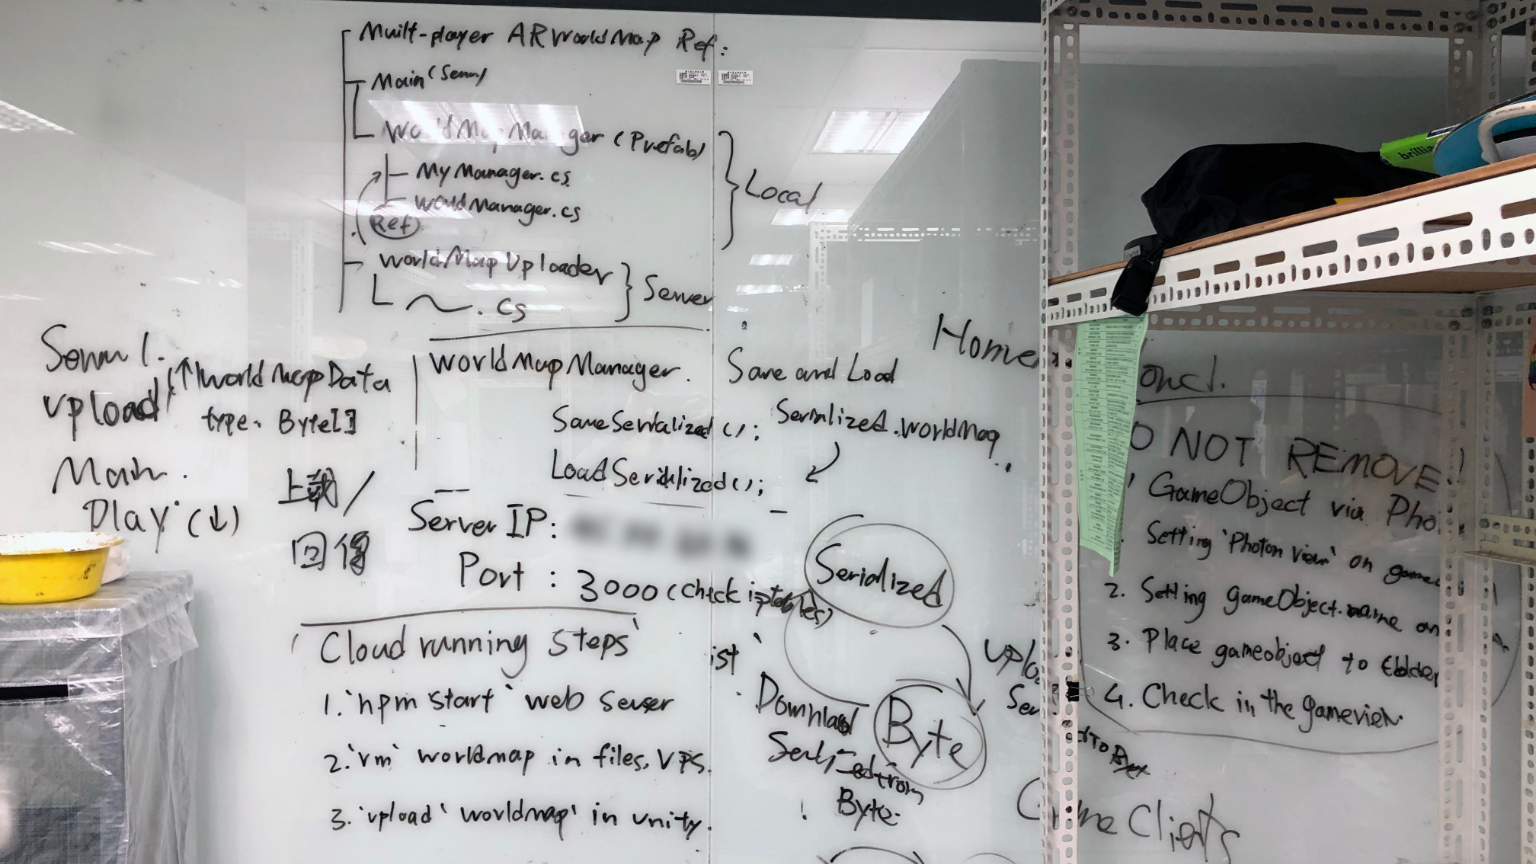 Muilt-player ARWorldMap Ref:
Main
WorldMapManager (Prefab)
MyManager.cs
WorldManager.cs
Ref
Local
WorldMap Uploader
.cs
Server
1.
upload
↑ WorldMapData
type. Byte[]
Main.
Play (↓)
上載/
回傳
WorldMapManager.
SaveSerialized ();
LoadSerialized ();
Save and Load
Serialized.worldMap
Server IP:
Port : 3000 (check iptables)
'Cloud running steps'
1. 'npm start' web server
2. 'rm' worldmap in files, VPS.
3. 'upload' 'worldmap' in unity.
Serialized
Byte
Download
from
Byte.
Home
NOT REMOVE!
GameObject via
Setting 'Photon View' on
2. Setting gameObject.name on
3. Place gameobject to
4. Check in the gameview.
Clients
brilli